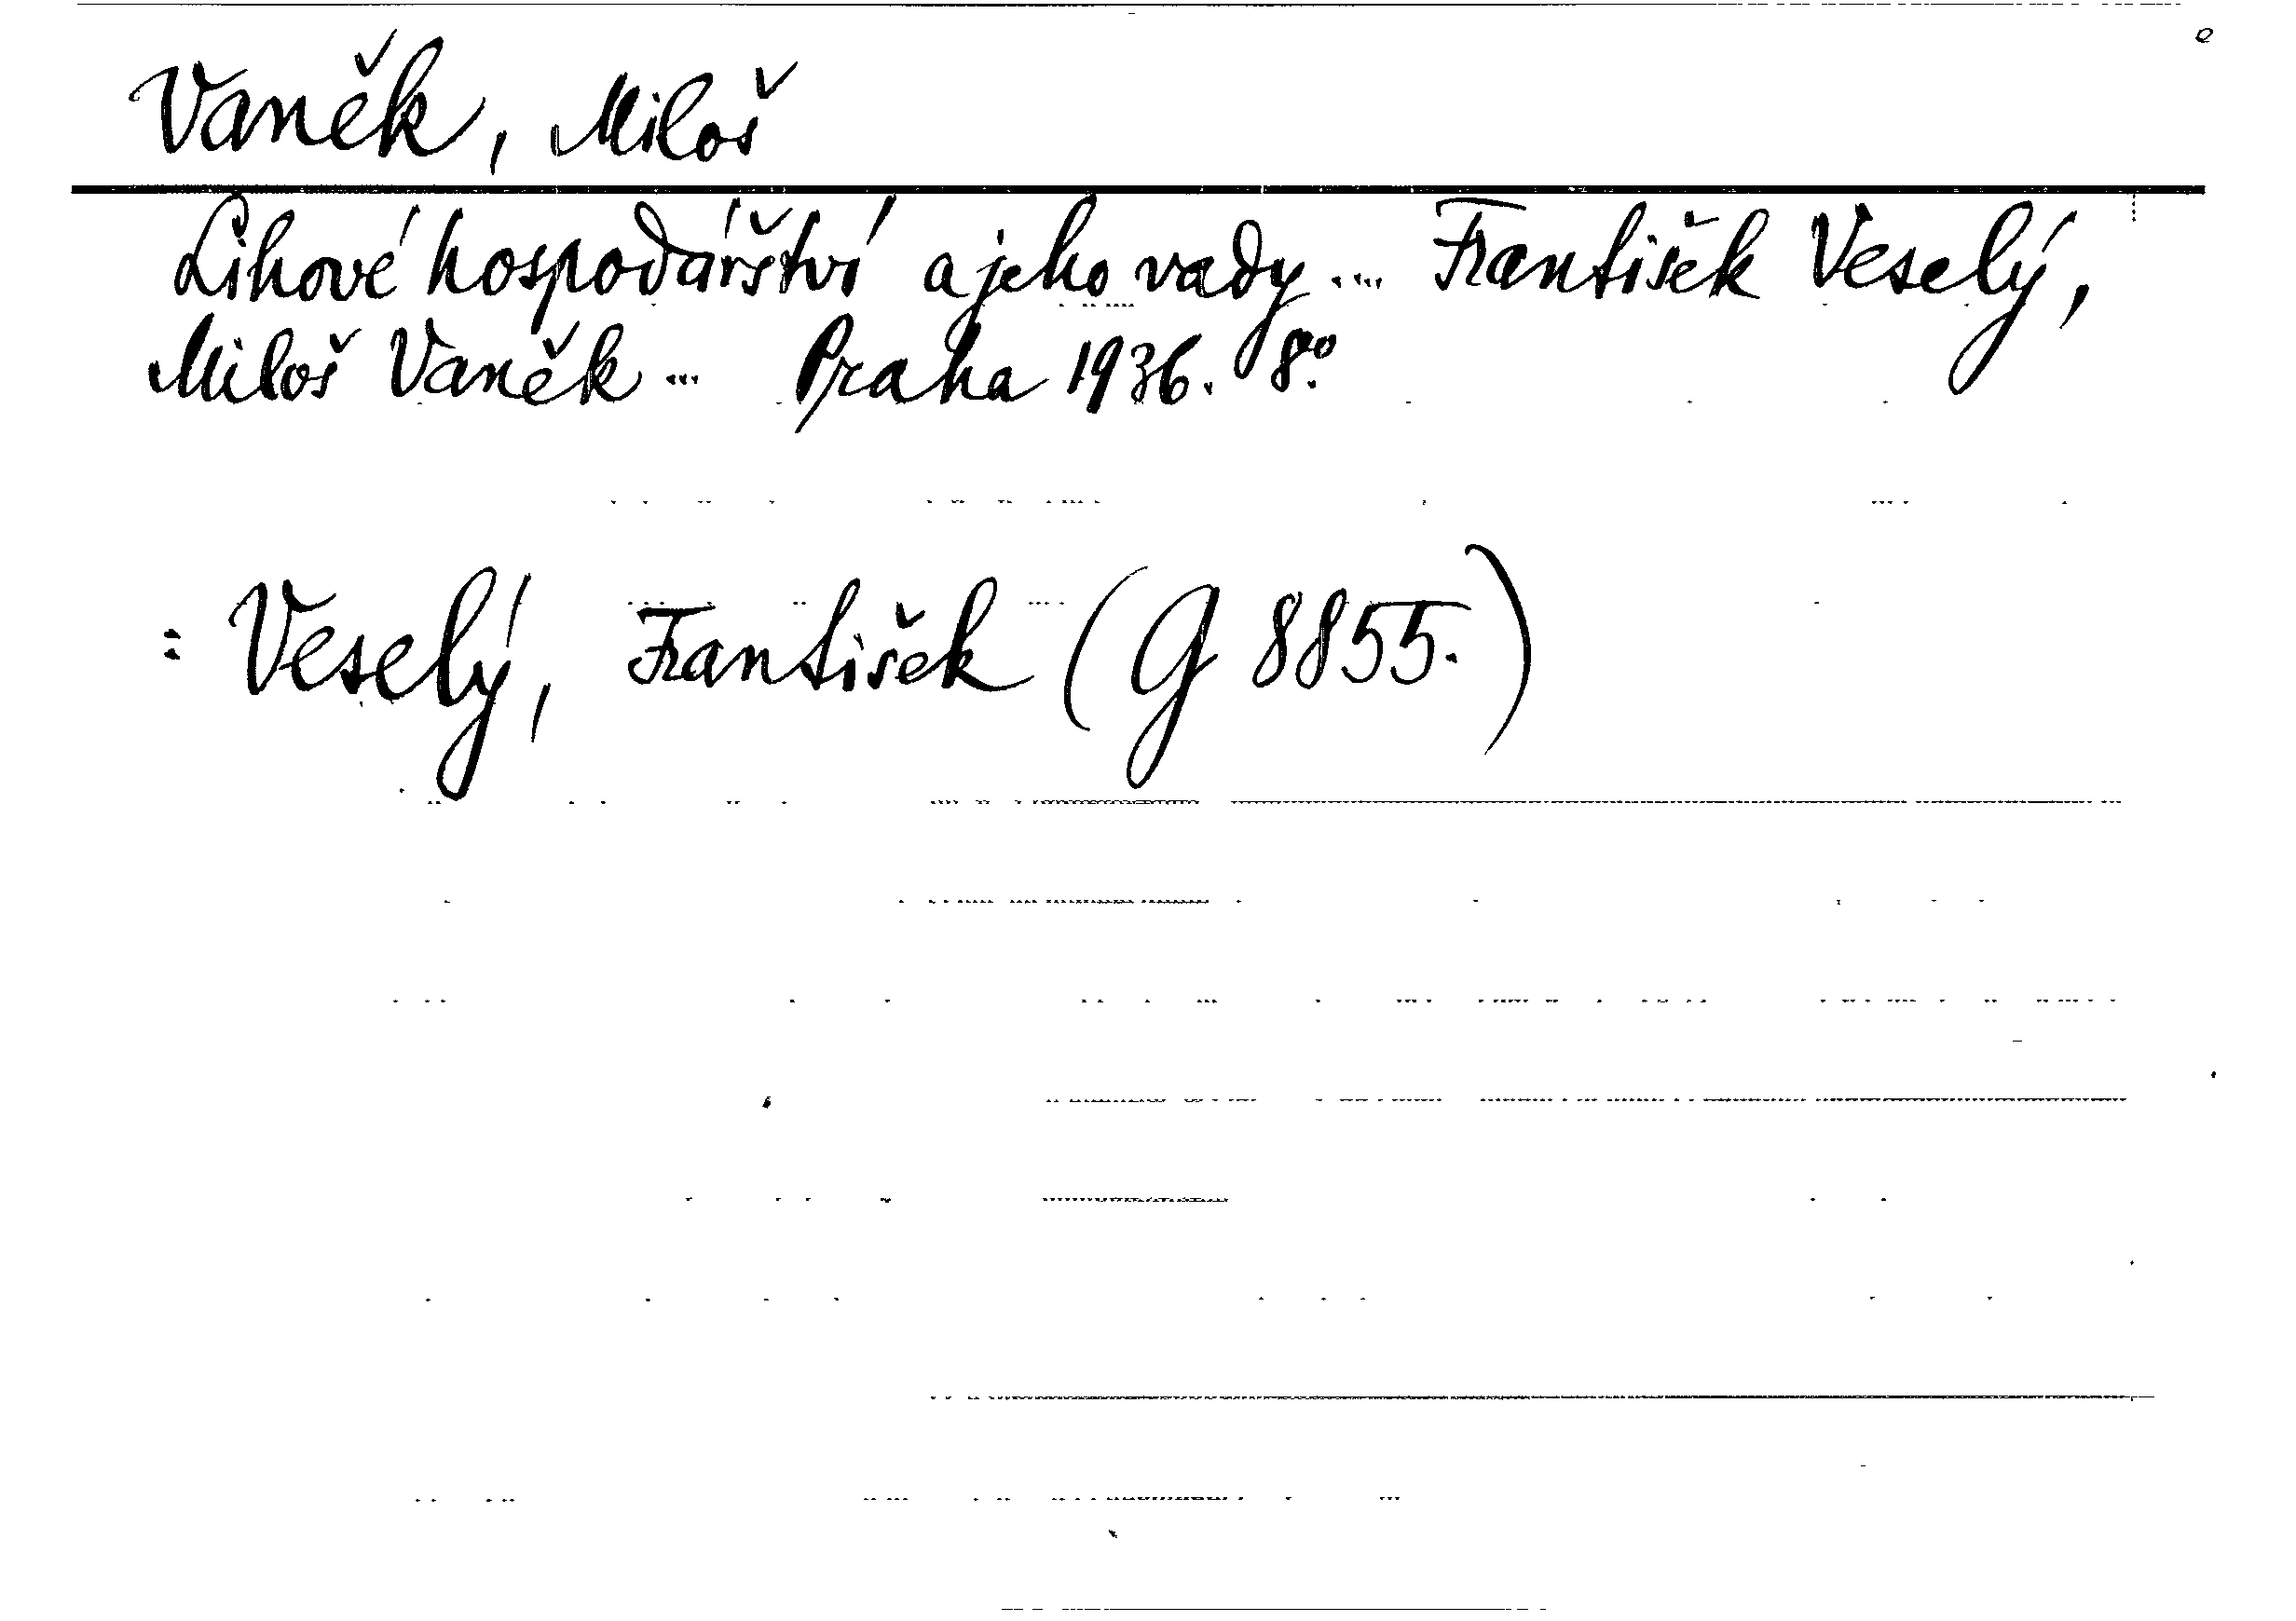 Vaněk, Miloš
Lihové hospodářství a jeho vady... František Veselý,
Miloš Vaněk... Praha 1936. 8.º
= Veselý, František (G 8855.)